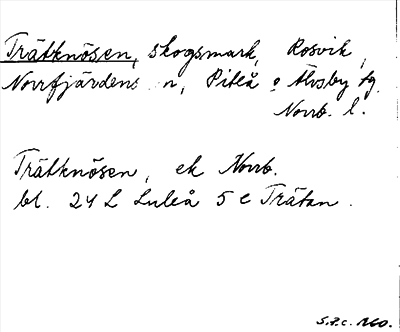 Trätknösen, skogsmark, Rosvik,
Norrfjärdens n, Piteå o Älvsby tg.
Norrb. l.
Trätknösen, ek Norrb.
bl. 24 L Luleå 5 c Trätan.
S.F.C. 1960.